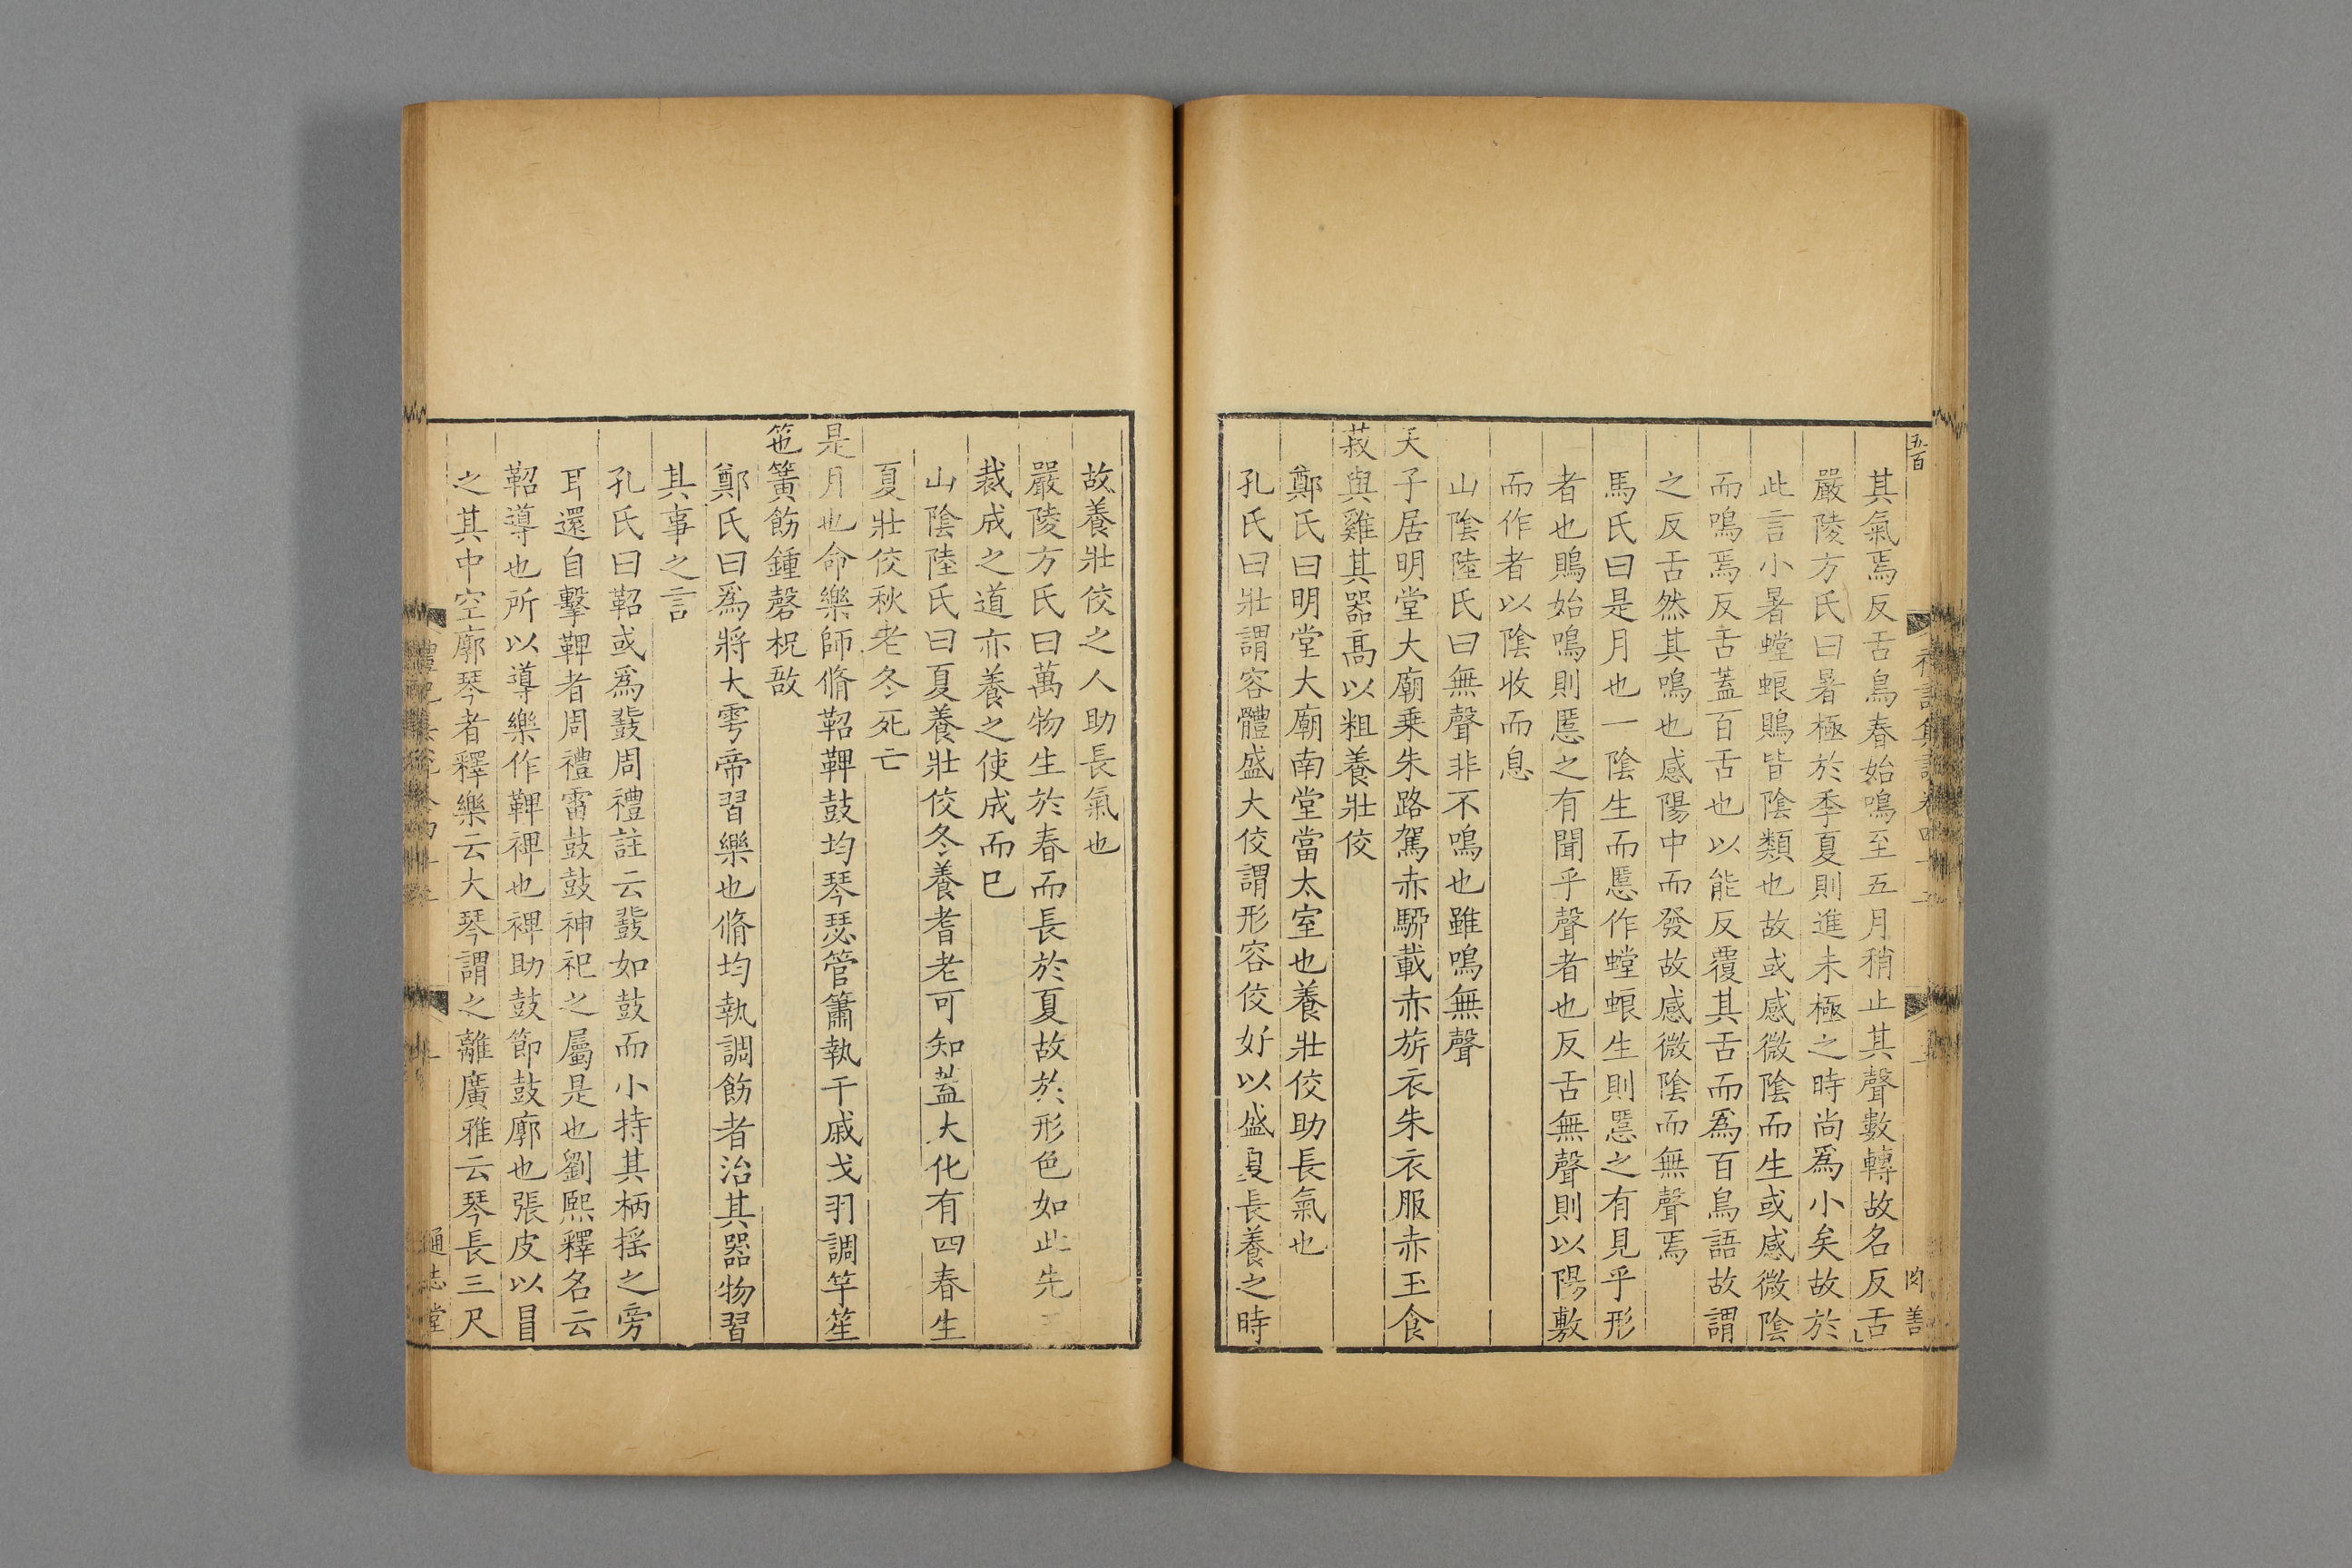 五百
其氣焉反舌鳥春始鳴至五月稍止其聲數轉故名反舌
嚴陵方氏曰暑極於季夏則進未極之時尚爲小矣故於
此言小暑螳蜋鵙皆陰類也故或感微陰而生或感微陰
而鳴焉反舌蓋百舌也以能反覆其舌而爲百鳥語故謂
之反舌然其鳴也感陽中而發故感微陰而無聲焉
馬氏曰是月也一陰生而慝作螳蜋生則慝之有見乎形
者也鵙始鳴則慝之有聞乎聲者也反舌無聲則以陽敷
而作者以陰收而息
山陰陸氏曰無聲非不鳴也雖鳴無聲
天子居明堂大廟乗朱路駕赤駵載赤旂衣朱衣服赤玉食
菽與雞其器髙以粗養壯佼
鄭氏曰明堂大廟南堂當太室也養壯佼助長氣也
孔氏曰壯謂容體盛大佼謂形容佼好以盛夏長養之時
故養壯佼之人助長氣也
嚴陵方氏曰萬物生於春而長於夏故於形色如此先王
裁成之道亦養之使成而已
山陰陸氏曰夏養壯佼冬養耆老可知蓋大化有四春生
夏壯佼秋老冬死亡
是月也命樂師脩鞀鞞鼓均琴瑟管簫執干戚戈羽調竽笙
竾簧飭鍾磬柷敔
鄭氏曰爲將大雩帝習樂也脩均執調飭者治其器物習
其事之言
孔氏曰鞀或爲鼗周禮註云鼗如鼓而小持其柄揺之旁
耳還自擊鞞者周禮雷鼓鼓神祀之屬是也劉熙釋名云
鞀導也所以導樂作鞞裨也裨助鼓節鼓廓也張皮以冒
之其中空廓琴者釋樂云大琴謂之離廣雅云琴長三尺
通志堂